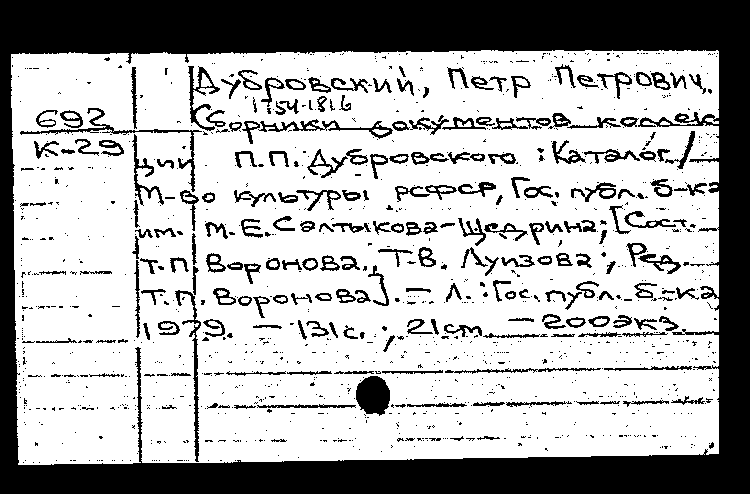 Дубровский, Петр Петрович.
1754-1816
692
Сборники документов коллек-
К-29
ции П.П. Дубровского : Каталог /
М-во культуры РСФСР, Гос. публ. б-ка
им. М.Е. Салтыкова-Щедрина; [Сост.
Т.П. Воронова, Т.В. Луизова; Ред.
Т.П. Воронова]. — Л. : Гос. публ. б-ка
1979. — 131 с. ; 21 см. — 200 экз.